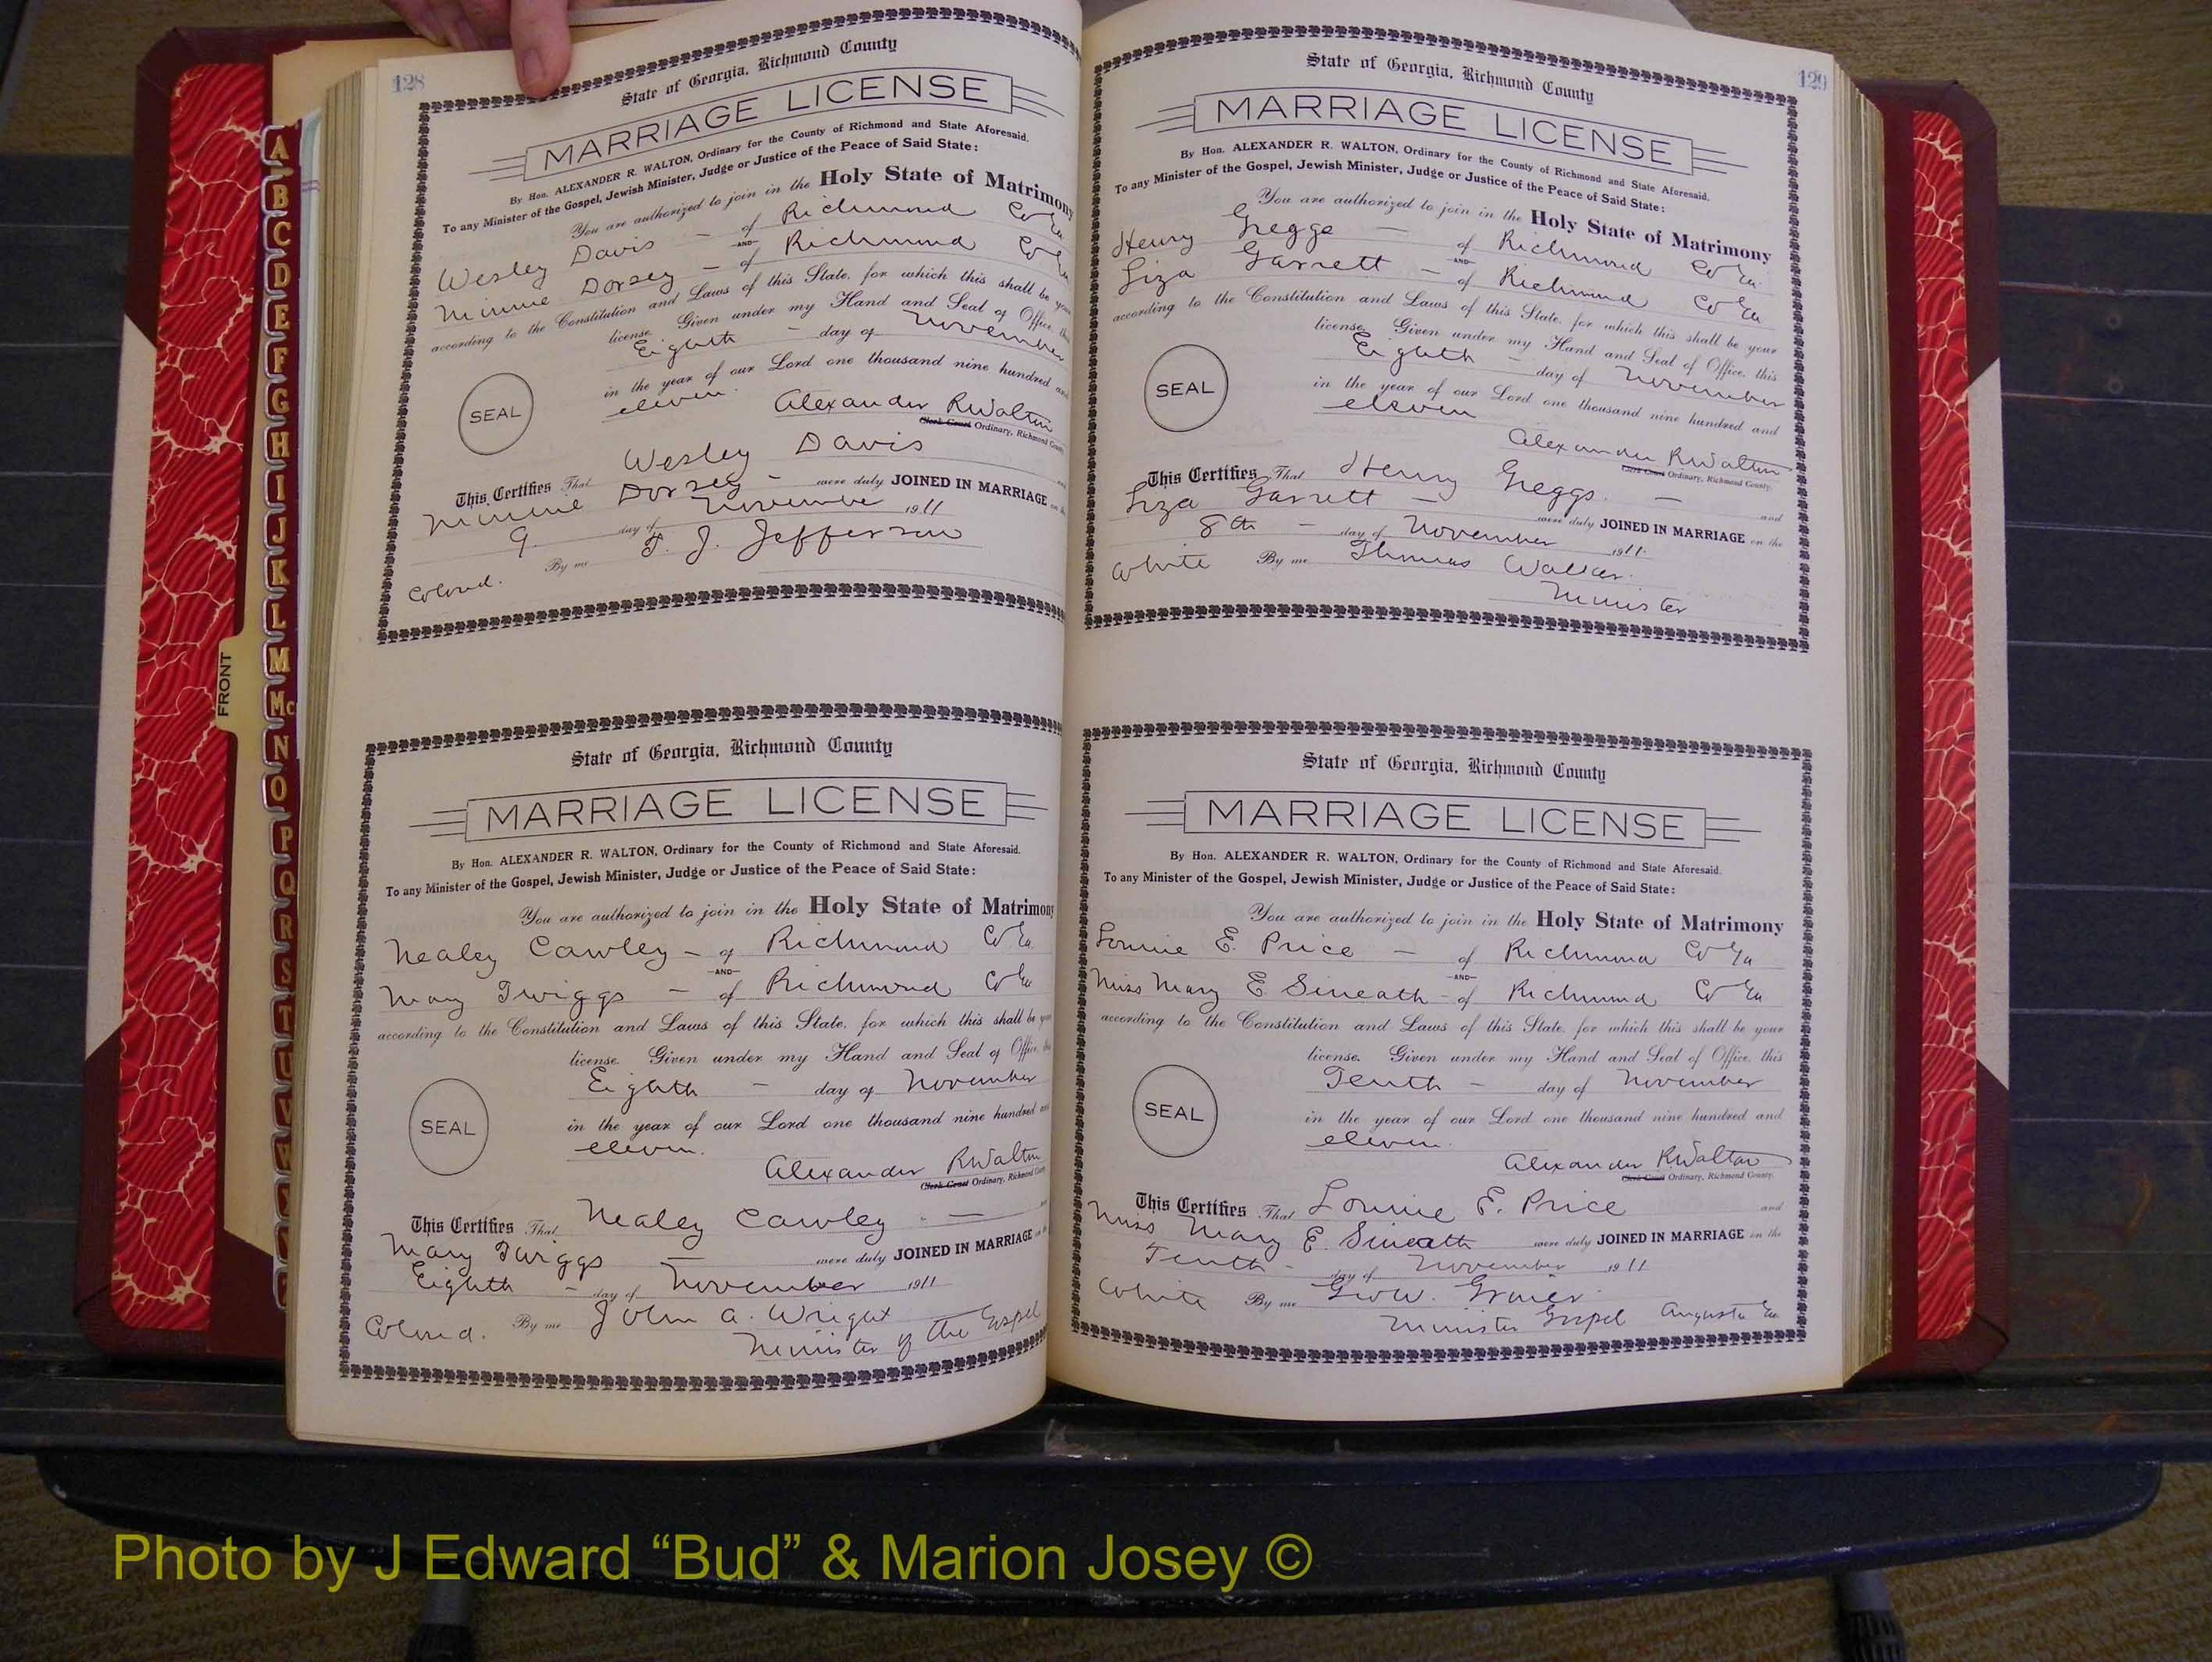 128
State of Georgia, Richmond County
MARRIAGE LICENSE
By Hon. ALEXANDER R. WALTON, Ordinary for the County of Richmond and State Aforesaid.
To any Minister of the Gospel, Jewish Minister, Judge or Justice of the Peace of Said State:
You are authorized to join in the Holy State of Matrimony
Wesley Davis - of Richmond Co Ga
-AND-
Minnie Dorsey - of Richmond Co Ga
according to the Constitution and Laws of this State, for which this shall be your
license. Given under my Hand and Seal of Office, this
Eighth - day of November
in the year of our Lord one thousand nine hundred and
SEAL
eleven.
Alexander R Walton
Clerk Court Ordinary, Richmond County
This Certifies That Wesley Davis and
Minnie Dorsey - were duly JOINED IN MARRIAGE on the
9. day of November 1911
Colored. By me T. J. Jefferson
State of Georgia, Richmond County
MARRIAGE LICENSE
By Hon. ALEXANDER R. WALTON, Ordinary for the County of Richmond and State Aforesaid.
To any Minister of the Gospel, Jewish Minister, Judge or Justice of the Peace of Said State:
You are authorized to join in the Holy State of Matrimony
Nealey Cawley - of Richmond Co Ga.
-AND-
Mary Twiggs - of Richmond Co Ga
according to the Constitution and Laws of this State, for which this shall be your
license. Given under my Hand and Seal of Office, this
Eighth - day of November
in the year of our Lord one thousand nine hundred and
SEAL
eleven.
Alexander R Walton
Clerk Court Ordinary, Richmond County
This Certifies That Nealey Cawley - and
Mary Twiggs - were duly JOINED IN MARRIAGE on the
Eighth - day of November 1911
Colored. By me John A. Wright
Minister of the Gospel
129
State of Georgia, Richmond County
MARRIAGE LICENSE
By Hon. ALEXANDER R. WALTON, Ordinary for the County of Richmond and State Aforesaid.
To any Minister of the Gospel, Jewish Minister, Judge or Justice of the Peace of Said State:
You are authorized to join in the Holy State of Matrimony
Henry Greggs - of Richmond Co Ga.
-AND-
Liza Garrett - of Richmond Co Ga
according to the Constitution and Laws of this State, for which this shall be your
license. Given under my Hand and Seal of Office, this
Eighth - day of November
in the year of our Lord one thousand nine hundred and
SEAL
eleven
Alexander R Walton
Clerk Court Ordinary, Richmond County.
This Certifies That Henry Greggs. - and
Liza Garrett - were duly JOINED IN MARRIAGE on the
8th - day of November 1911.
White By me Thomas Walker.
Minister
State of Georgia, Richmond County
MARRIAGE LICENSE
By Hon. ALEXANDER R. WALTON, Ordinary for the County of Richmond and State Aforesaid.
To any Minister of the Gospel, Jewish Minister, Judge or Justice of the Peace of Said State:
You are authorized to join in the Holy State of Matrimony
Lonnie E. Price - of Richmond Co Ga
-AND-
Miss Mary E. Sineath - of Richmond Co Ga
according to the Constitution and Laws of this State, for which this shall be your
license. Given under my Hand and Seal of Office, this
Tenth - day of November
in the year of our Lord one thousand nine hundred and
SEAL
eleven.
Alexander R Walton
Clerk Court Ordinary, Richmond County.
This Certifies That Lonnie E. Price and
Miss Mary E. Sineath were duly JOINED IN MARRIAGE on the
Tenth - day of November 1911
White By me Geo W.
Minister Gospel Augusta Ga
A
B
C
D
E
F
G
H
I
J
K
L
M
Mc
N
O
P
Q
R
S
T
U
V
FRONT
Photo by J Edward “Bud” & Marion Josey ©